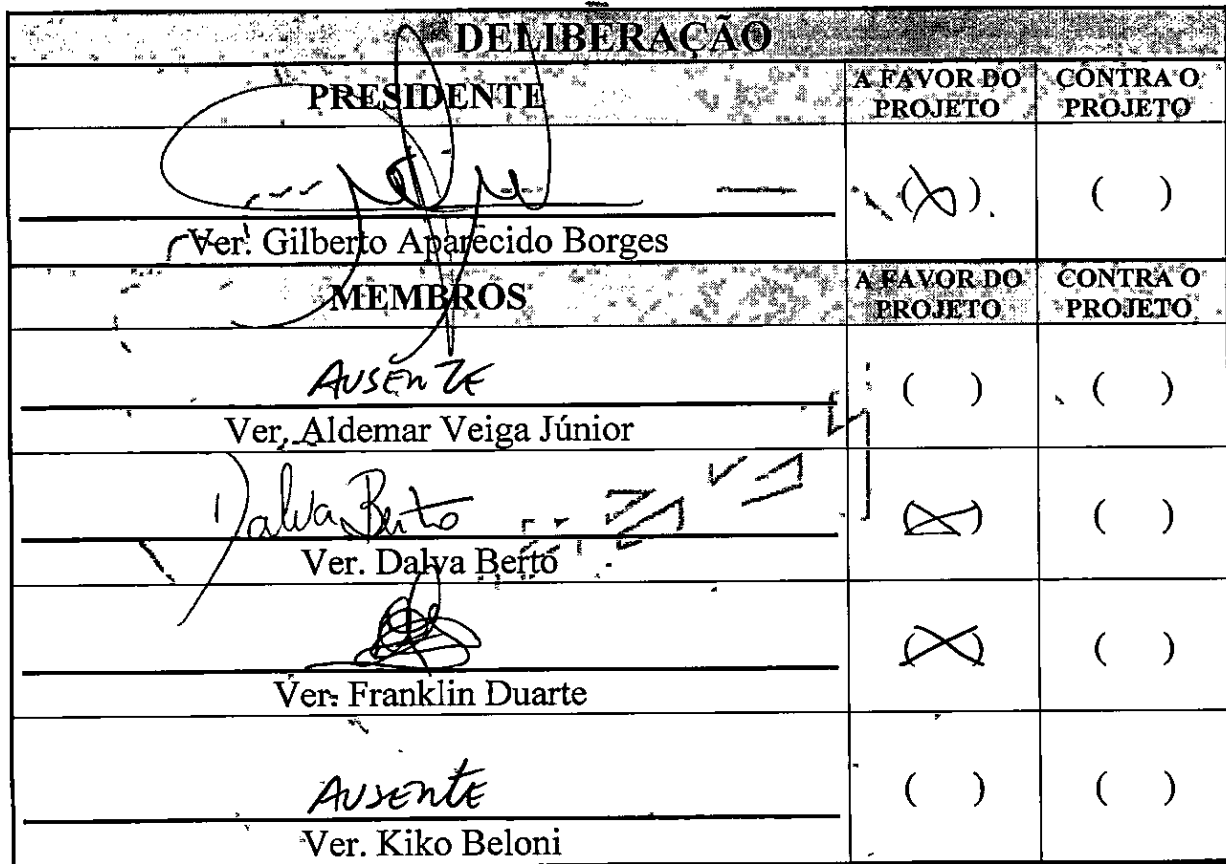 DELIBERAÇÃO
PRESIDENTE
A FAVOR DO PROJETO
CONTRA O PROJETO
( X )
( )
Ver. Gilberto Aparecido Borges
MEMBROS
A FAVOR DO PROJETO
CONTRA O PROJETO
AUSENTE
( )
( )
Ver. Aldemar Veiga Júnior
Dalva Berto
( X )
( )
Ver. Dalva Berto
( X )
( )
Ver. Franklin Duarte
AUSENTE
( )
( )
Ver. Kiko Beloni